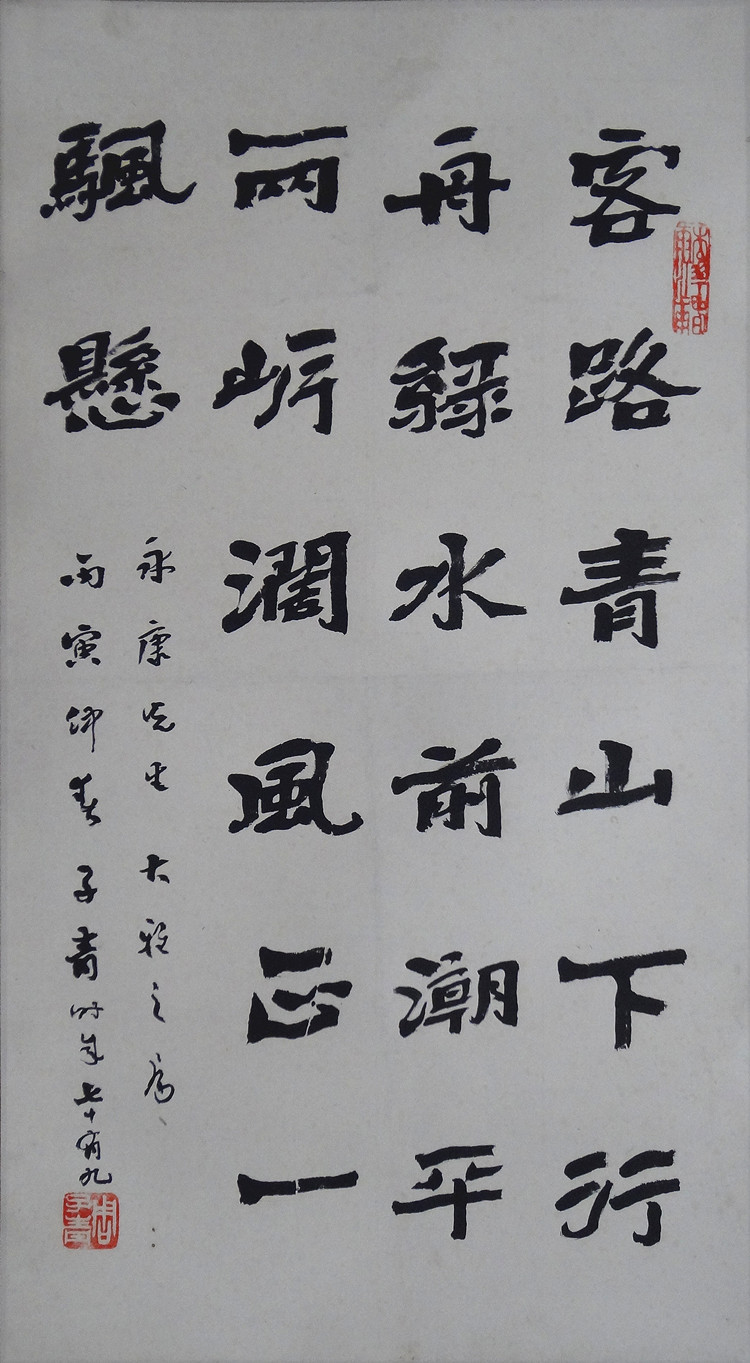 客路青山下行
舟綠水前潮平
兩岸濶風正一
颿懸
永康先生大雅之屬
丙寅仲春子青時年七十有九
周子青